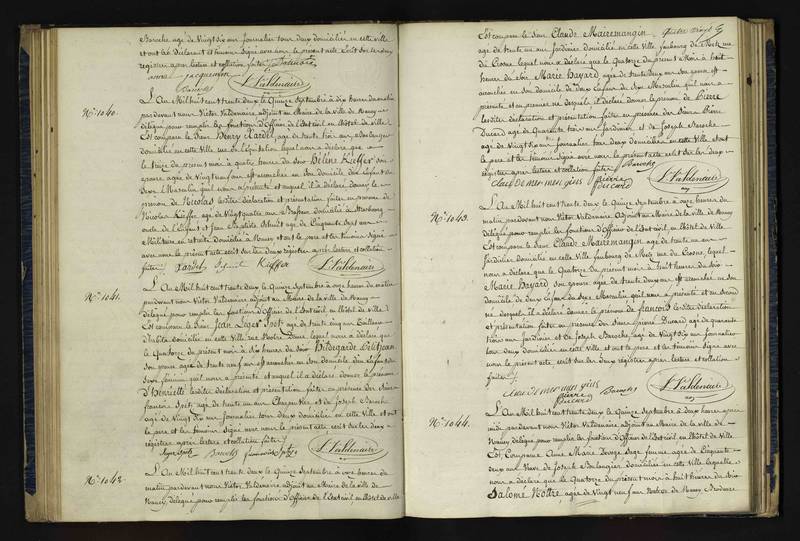 Baroche agé de Vingt six ans journalier tous deux domiciliés en cette ville
et ont les déclarant et témoins signé avec nous le présent acte écrit sur les deux
registres après lecture et collation faites
Jacquemin
Baroche
V. Valdenaire
No. 1040.
L'An Mil huit cent trente deux le Quinze Septembre à dix heures du matin
pardevant nous Victor Valdenaire adjoint au Maire de la Ville de Nancy
délégué pour remplir les fonctions d'Officier de l'Etat civil en l'hôtel de Ville
Est comparu le Sieur Henry Xardel agé de trente trois ans Boulanger
domicilié en cette Ville rue lequel nous a déclaré que
le treize du présent mois à quatre heures du soir Hélène Kieffer son
épouse agée de Vingt neuf ans est accouchée en son domicile d'un Enfant du
Sexe Masculin qu'il nous a présenté et auquel il a déclaré donner le
prénom de Nicolas lesdites déclaration et présentation faites en présence de
Nicolas Kieffer agé de Vingt quatre ans Brasseur domicilié à Strasbourg
oncle de l'Enfant et Jean Baptiste Schmit agé de Cinquante sept ans
Militaire en retraite domicilié à Nancy et ont les père et témoins signé
avec nous le présent acte écrit sur les deux registres après lecture et collation
faites Xardel Schmit Kieffer V. Valdenaire
No. 1041.
L'An Mil huit cent trente deux le Quinze Septembre à onze heures du matin
pardevant nous Victor Valdenaire adjoint au Maire de la ville de Nancy
délégué pour remplir les fonctions d'Officier de l'Etat civil en l'hôtel de Ville
Est comparu le Sieur Jean Léger Spetz agé de trente cinq ans Tailleur
d'habits domicilié en cette Ville rue Notre Dame lequel nous a déclaré que
le Quatorze du présent mois à dix heures du soir Hildegarde Petitjean
son épouse agée de trente neuf ans est accouchée en son domicile d'un Enfant du
Sexe féminin qu'il nous a présenté et auquel il a déclaré donner le prénom
d'Henriette lesdites déclaration et présentation faites en présence des Sieurs
François Spetz agé de trente un ans Charpentier et de Joseph Baroche
agé de Vingt six ans journalier tous deux domiciliés en cette Ville et ont
les père et témoins signé avec nous le présent acte écrit sur les deux
registres après lecture et collation faites
Baroche françois Spetz V. Valdenaire
No. 1042.
L'An Mil huit cent trente deux le Quinze Septembre à onze heures du
matin pardevant nous Victor Valdenaire adjoint au Maire de la ville de
Nancy, délégué pour remplir les fonctions d'Officier de l'Etat civil en l'hôtel de ville
Est comparu le Sieur Claude Mairemangin
agé de trente un ans Jardinier domicilié en cette Ville, faubourg de Metz rue
de Cosne lequel nous a déclaré que le Quatorze du présent Mois à huit
heures du soir Marie Hayard agée de trente deux ans son épouse est
accouchée en son domicile de deux Enfans du Sexe Masculin qu'il nous a
présenté et au premier né desquels il a déclaré donner le prénom de Pierre
lesdites déclaration et présentation faites en présence des Sieurs Pierre
Ducard agé de Quarante trois ans Jardinier et de Joseph Baroche
agé de Vingt six ans journalier tous deux domiciliés en cette Ville et ont
les père et témoins signé avec nous le présent acte écrit sur les deux
registres après lecture et collation faites Baroche
pierre
ducard
V. Valdenaire
No. 1043.
L'An Mil huit cent trente deux le Quinze Septembre à onze heures du
matin pardevant nous Victor Valdenaire Adjoint au Maire de la Ville de Nancy
délégué pour remplir les fonctions d'Officier de l'Etat civil, en l'hôtel de Ville
Est comparu le Sieur Claude Mairemangin agé de trente un ans
Jardinier domicilié en cette Ville faubourg de Metz rue de Cosne, lequel
nous a déclaré que le Quatorze du présent mois à huit heures du soir
Marie Hayard son épouse agée de trente deux ans est accouchée en son
domicile de deux Enfans du Sexe Masculin qu'il nous a présenté et au Second
né desquels il a déclaré donner le prénom de françois lesdites déclaration
et présentation faites en présence des Sieurs Pierre Ducard agé de quarante
trois ans Jardinier et de Joseph Baroche, agé de Vingt six ans journalier
tous deux domiciliés en cette ville et ont les père et les témoins signé avec
nous le présent acte écrit sur les deux registres après lecture et collation
faites
pierre
ducard
Baroche
V. Valdenaire
No. 1044.
L'An Mil huit cent trente deux le Quinze Septembre à deux heures après
midi pardevant nous Victor Valdenaire Adjoint au Maire de la ville de
Nancy délégué pour remplir les fonctions d'Officier de l'Etat civil, en l'hôtel de Ville
Est Comparue Anne Marie Sage femme agée de Cinquante
deux ans Veuve de Joseph domiciliée en cette Ville laquelle
nous a déclaré que le Quatorze du présent mois à huit heures du soir
Salomé Noltre, agée de Vingt neuf ans Brodeuse